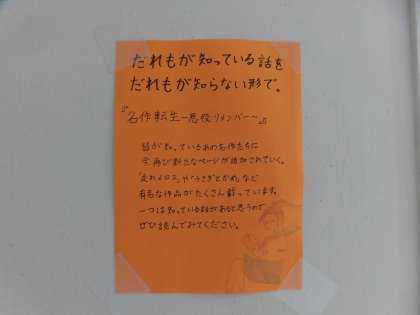 だれもが知っている話を
だれもが知らない形で。
『名作転生ー悪役リメンバー〜』
皆が知っているあの名作たちに
今再び新たなページが追加されていく。
「走れメロス」や「うさぎとかめ」など
有名な作品がたくさん載っています。
一つは知っている話があると思うので
ぜひ読んでみてください。